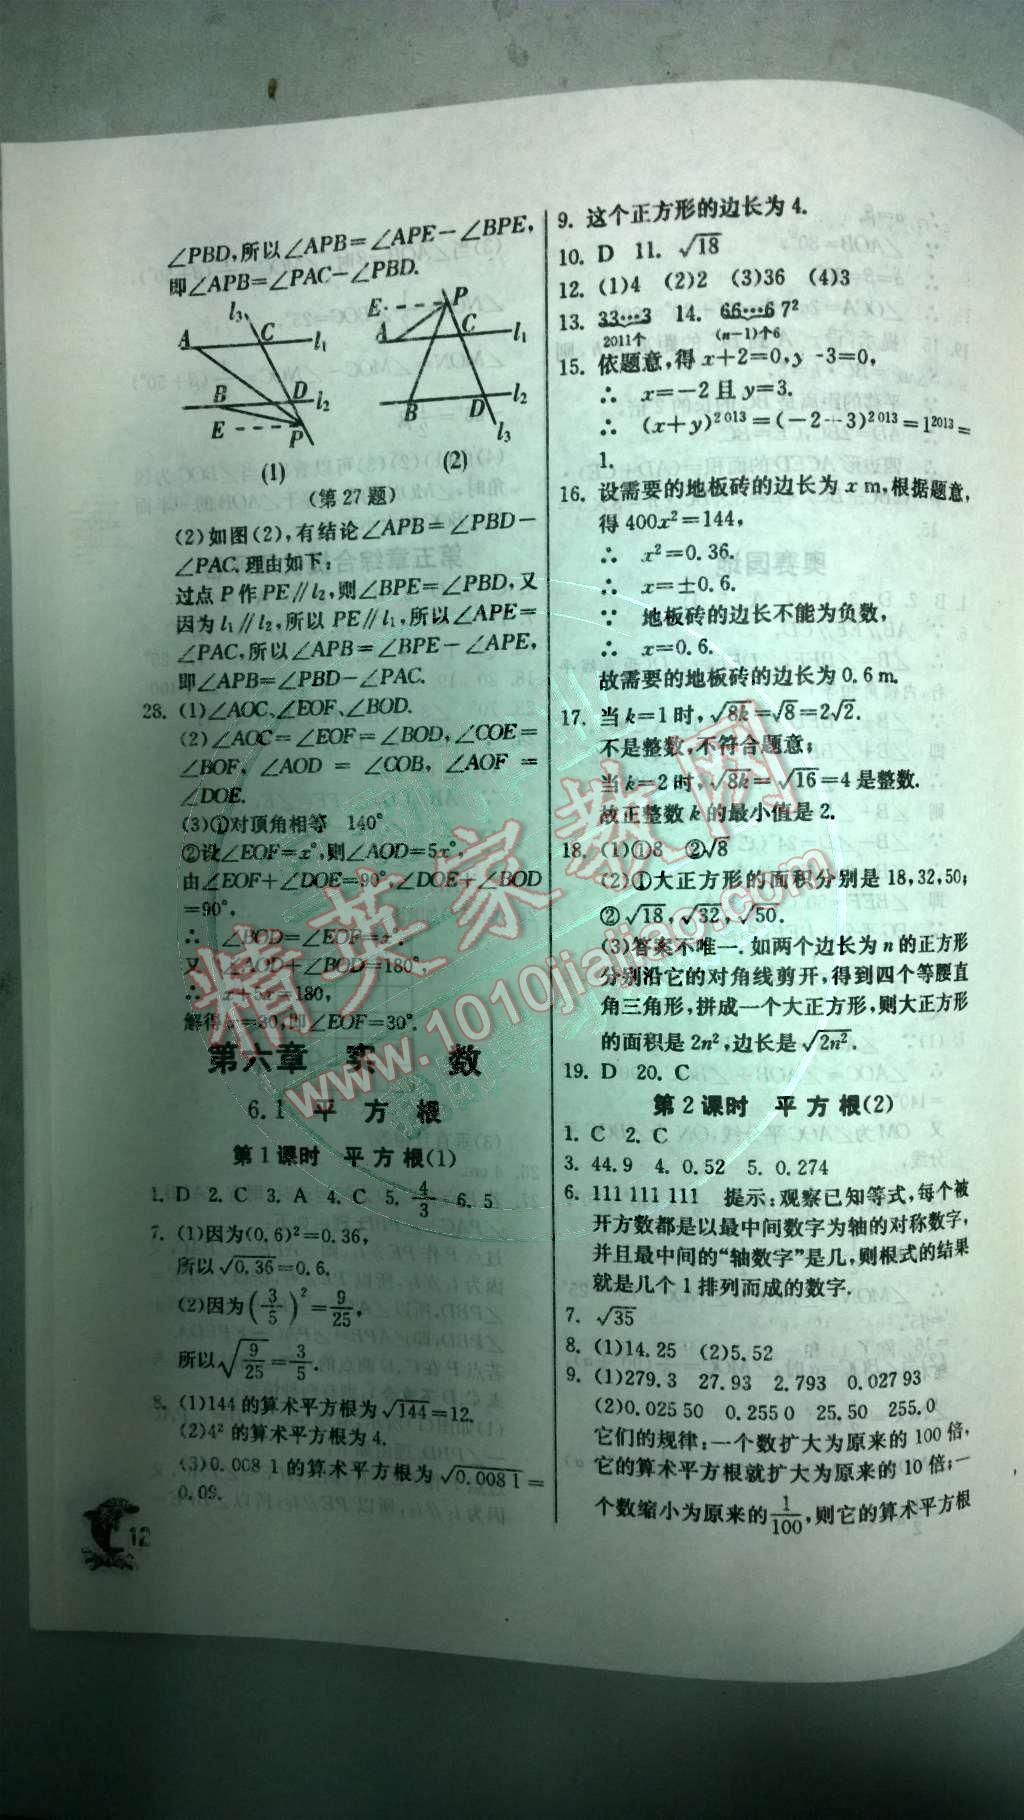 ∠PBD,所以∠APB=∠APE-∠BPE,
即∠APB=∠PAC-∠PBD.
l₃ C A l₁
B D l₂
E P
(1)
E P
A C l₁
B D l₂
l₃
(2)
(第27题)
(2)如图(2),有结论∠APB=∠PBD-
∠PAC.理由如下:
过点P作PE∥l₂,则∠BPE=∠PBD,又
因为l₁∥l₂,所以PE∥l₁,所以∠APE=
∠PAC,所以∠APB=∠BPE-∠APE,
即∠APB=∠PBD-∠PAC.
28. (1)∠AOC、∠EOF、∠BOD.
(2)∠AOC=∠EOF=∠BOD,∠COE=
∠BOF, ∠AOD = ∠COB, ∠AOF =
∠DOE.
(3)①对顶角相等 140°
②设∠EOF=x°,则∠AOD=5x°,
由∠EOF+∠DOE=90°,∠DOE+∠BOD
=90°,
∴ ∠BOD=∠EOF=x°.
又 ∠AOD+∠BOD=180°,
∴ x+5x=180,
解得x=30,即∠EOF=30°.
第六章 实 数
6.1 平 方 根
第1课时 平方根(1)
1. D 2. C 3. A 4. C 5. 4/3 6. 5
7. (1)因为(0.6)²=0.36,
所以√0.36=0.6.
(2)因为(3/5)²=9/25,
所以√(9/25)=3/5.
8. (1)144的算术平方根为√144=12.
(2)4²的算术平方根为4.
(3)0.008 1的算术平方根为√0.008 1=
0.09.
12
9. 这个正方形的边长为4.
10. D 11. √18
12. (1)4 (2)2 (3)36 (4)3
13. 33…3 14. 66…6 7²
2011个 (n-1)个6
15. 依题意,得x+2=0,y-3=0,
∴ x=-2且y=3.
∴ (x+y)²⁰¹³=(-2+3)²⁰¹³=1²⁰¹³=
1.
16. 设需要的地板砖的边长为x m,根据题意,
得400x²=144,
∴ x²=0.36.
∴ x=±0.6.
∵ 地板砖的边长不能为负数,
∴ x=0.6.
故需要的地板砖的边长为0.6 m.
17. 当k=1时,√8k=√8=2√2.
不是整数,不符合题意;
当k=2时,√8k=√16=4是整数.
故正整数k的最小值是2.
18. (1)①8 ②√8
(2)①大正方形的面积分别是18,32,50;
②√18,√32,√50.
(3)答案不唯一.如两个边长为n的正方形
分别沿它的对角线剪开,得到四个等腰直
角三角形,拼成一个大正方形,则大正方形
的面积是2n²,边长是√2n².
19. D 20. C
第2课时 平方根(2)
1. C 2. C
3. 44.9 4. 0.52 5. 0.274
6. 111 111 111 提示:观察已知等式,每个被
开方数都是以最中间数字为轴的对称数字,
并且最中间的“轴数字”是几,则根式的结果
就是几个1排列而成的数字.
7. √35
8. (1)14.25 (2)5.52
9. (1)279.3 27.93 2.793 0.027 93
(2)0.025 50 0.255 0 25.50 255.0
它们的规律:一个数扩大为原来的100倍,
它的算术平方根就扩大为原来的10倍;一
个数缩小为原来的1/100,则它的算术平方根
精英家教网
www.1010jiajiao.com